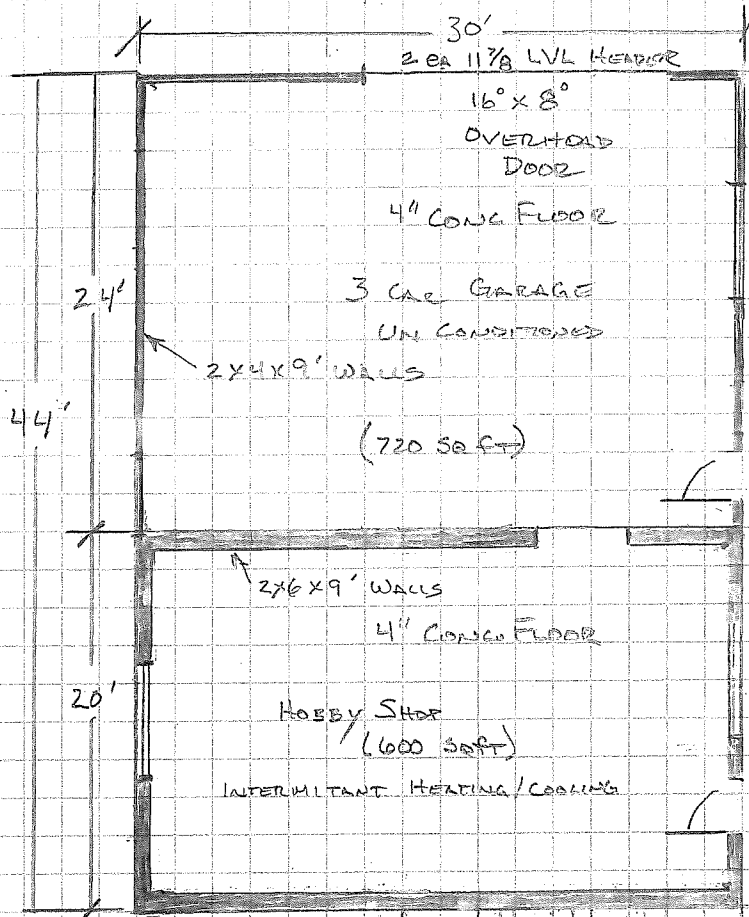 30'
2 ea 11 7/8 LVL HEADER
16° x 8°
OVERHOLD
DOOR
4" CONC FLOOR
24'
3 CAR GARAGE
UN CONDITIONED
2x4x9' WALLS
44'
(720 SQ FT)
2x6x9' WALLS
4" CONC. FLOOR
20'
HOBBY SHOP
(600 SQFT)
INTERMITANT HEATING/COOLING